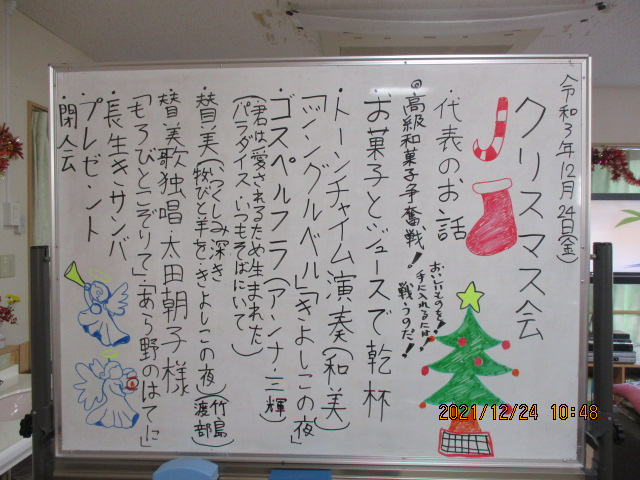 令和3年12月24日(金)
クリスマス会
・代表のお話
◎高級和菓子争奪戦!
おいしいものを!
手に入れるには!
戦うのだ!
・お菓子とジュースで乾杯
・トーンチャイム演奏(和、美)
「ジングルベル」「きよしこの夜」
・ゴスペルフラ(アンナ・三輝)
(君は愛されるため生まれた)
(パラダイス、いつもそばにいて)
・賛美(いつくしみ深き
牧びと羊を、きよしこの夜)
(竹島
渡部)
・賛美歌独唱・太田朝子様
「もろびとこぞりて」「あら野のはてに」
・長生きサンバ
・プレゼント
・閉会
2021/12/24 10:48